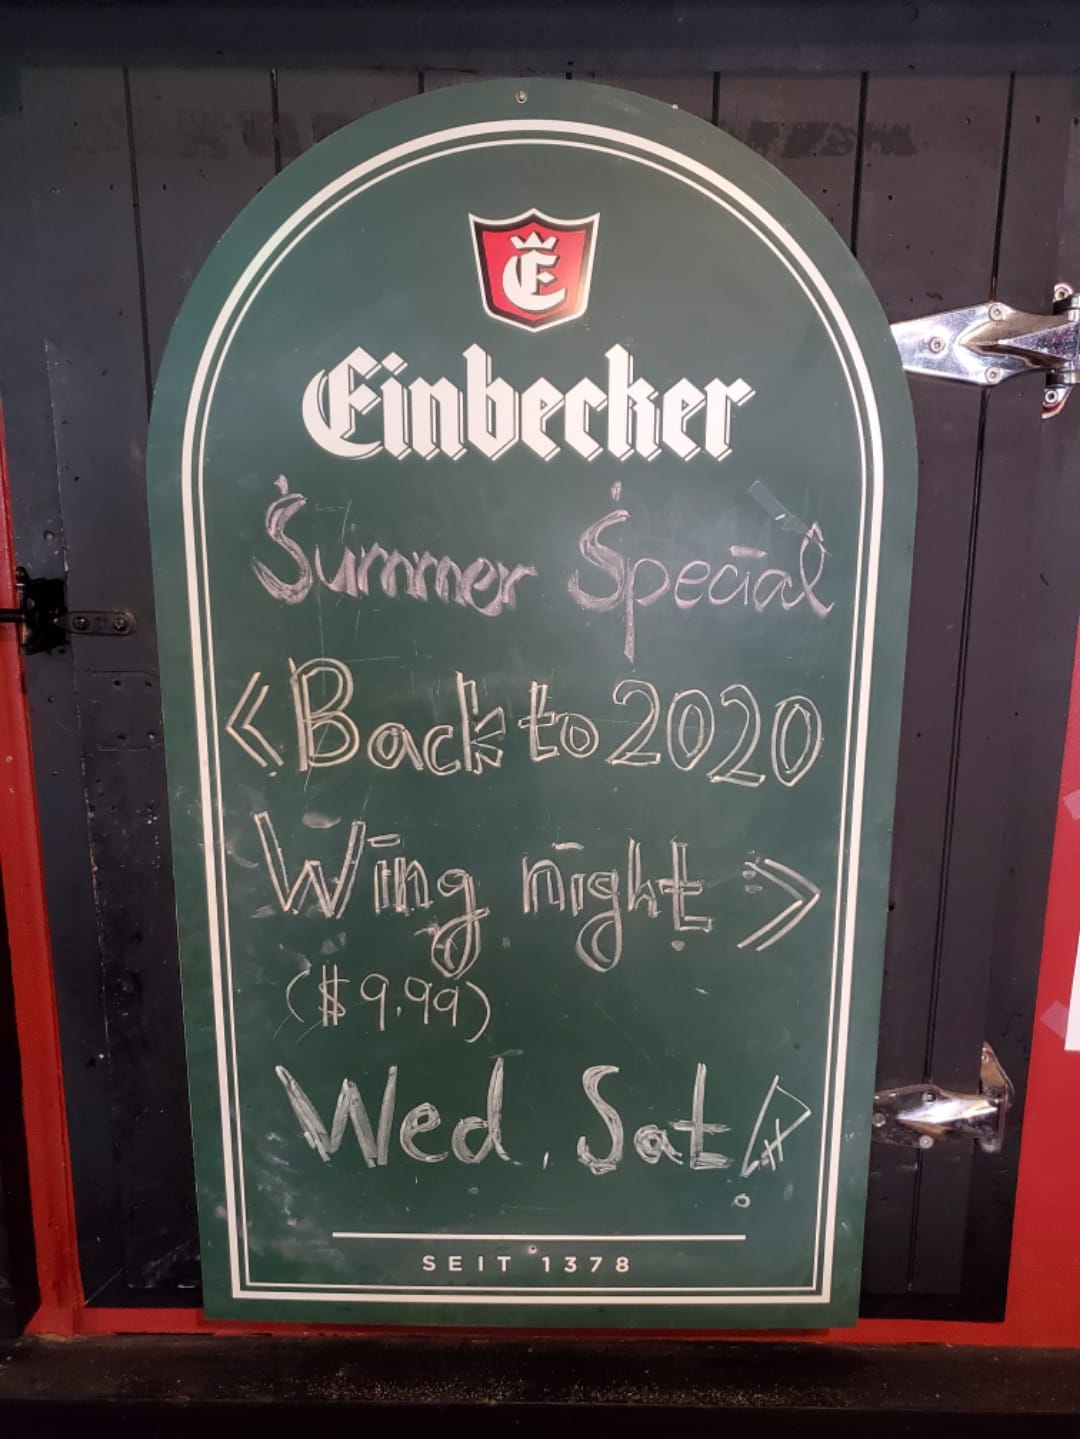 E
Einbecker
Summer Special
《Back to 2020
Wing night》
($9.99)
Wed, Sat!
SEIT 1378